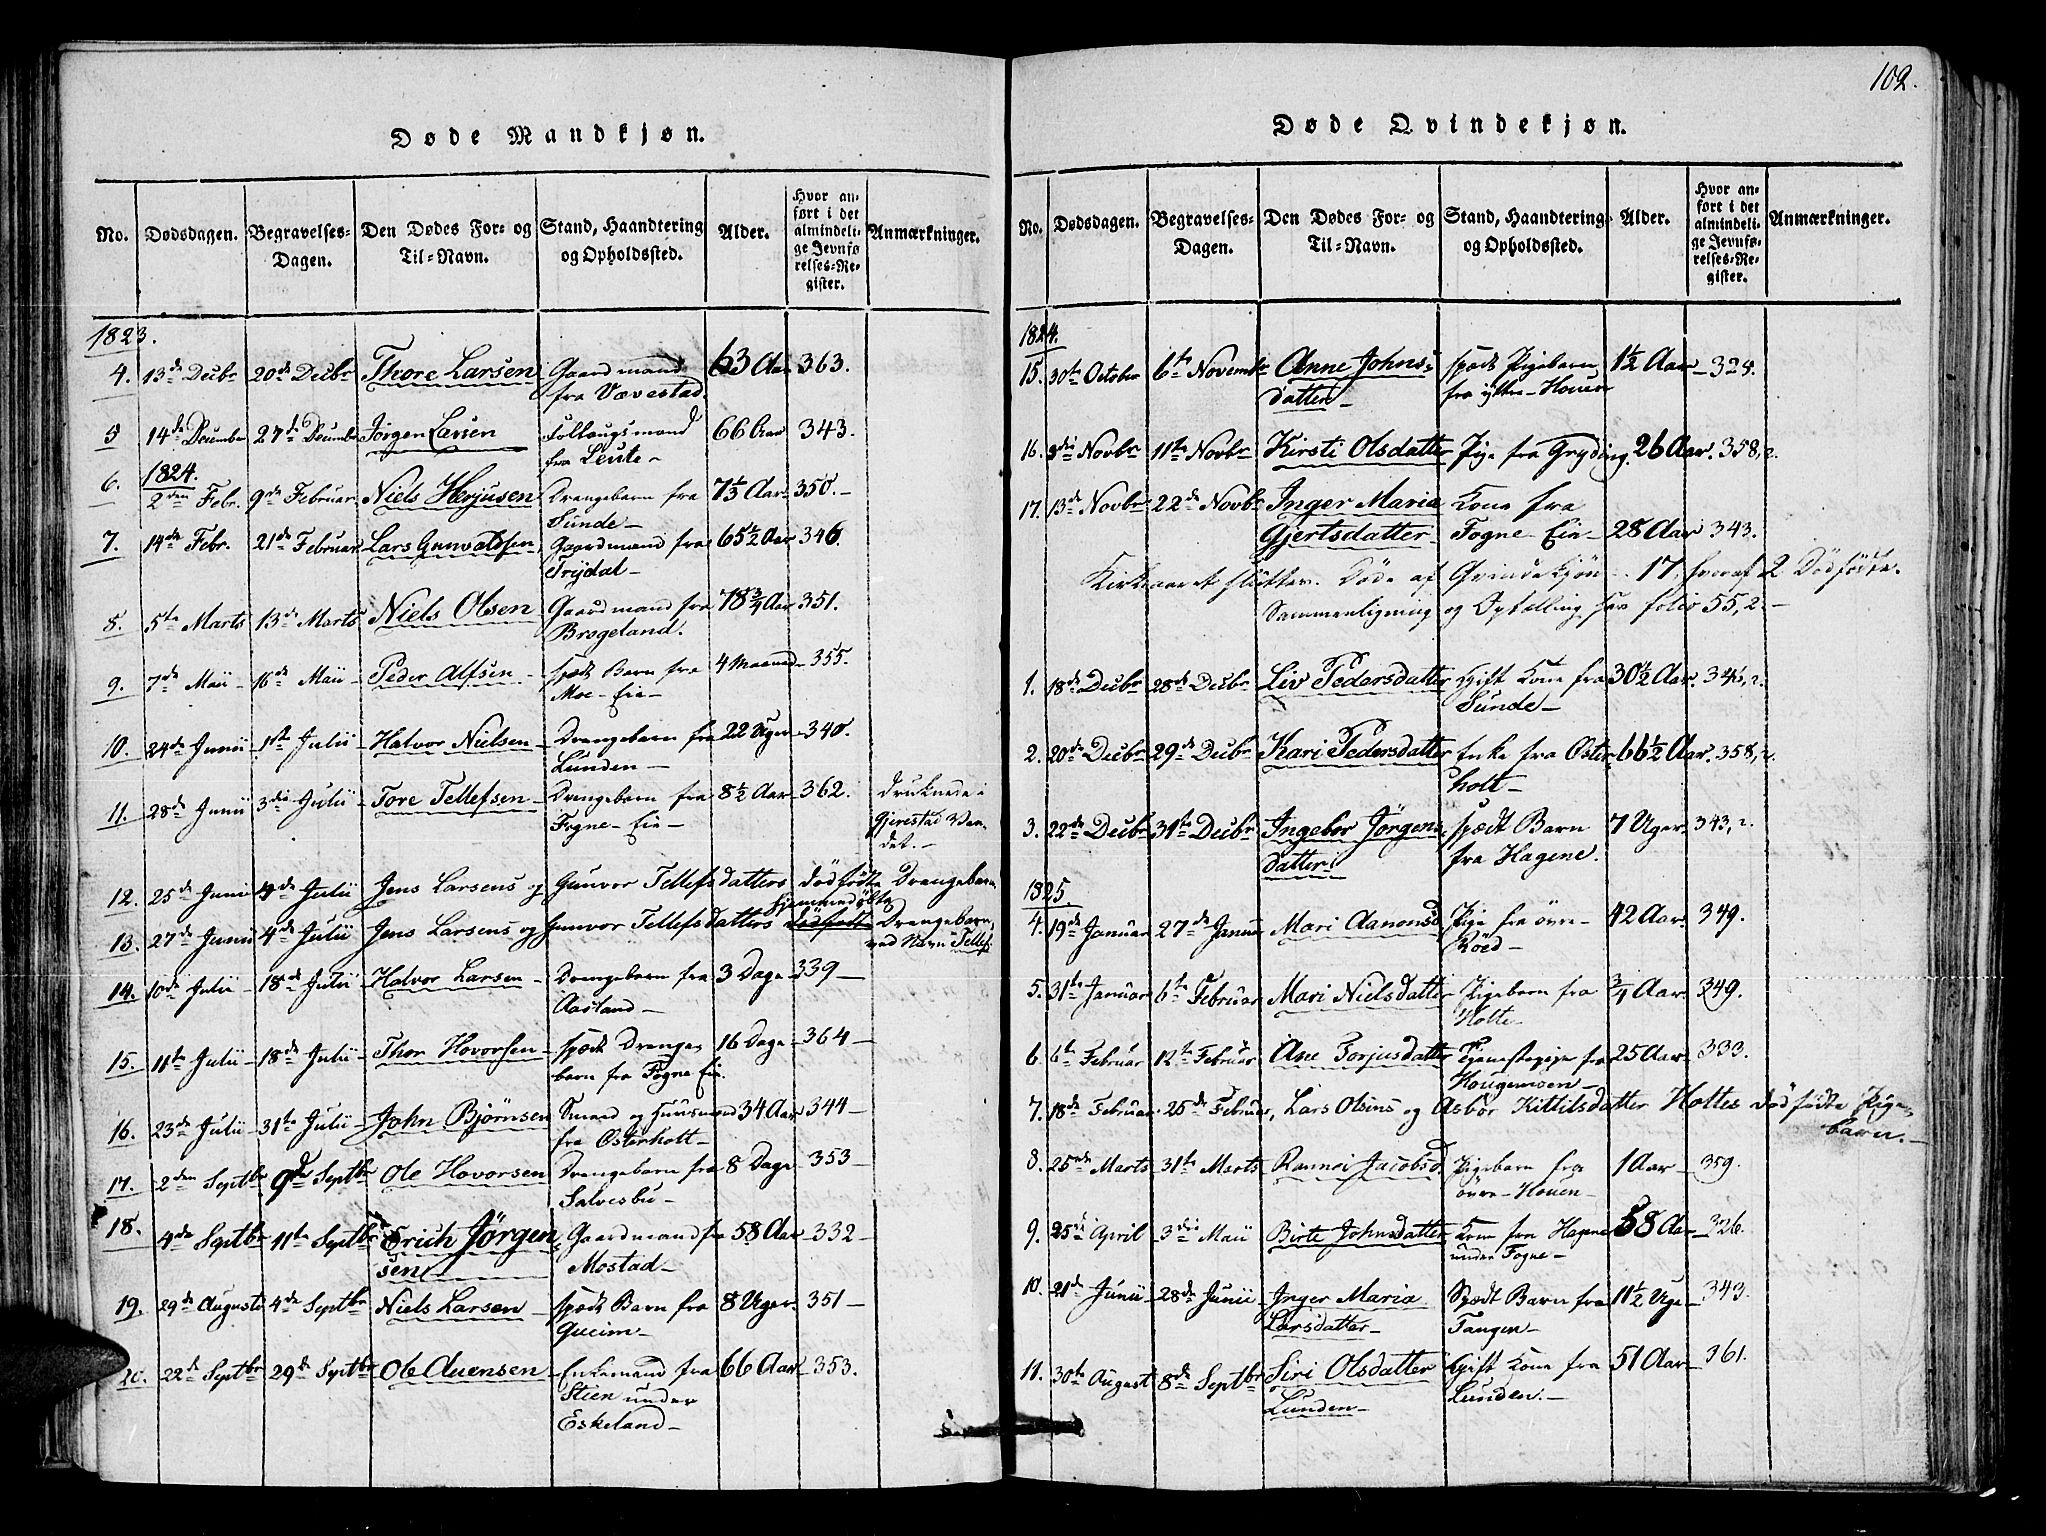 Døde Mandkjøn.
No. Dødsdagen. Begravelses-Dagen. Den Dødes For- og Til-Navn. Stand, Haandtering og Opholdssted. Alder. Hvor anført i det almindelige Jevnførelses-Register. Anmærkninger.
1823.
4. 13de Decbr 20de Decbr Thore Larsen Gaardmand 63 Aar 363.
fra Vævestad.
5 14de Decembr 27de Decembr Jørgen Larsen 66 Aar 343.
fra Leute
6. 1824.
2den Febr. 9de Februar Niels Herjusen Drengebarn fra 7 1/3 Aar 350.
Sunde
7. 14de Febr. 21de Februar Lars Gunvaldsen Gaardmand fra 65 1/2 Aar 346.
Trydal
8. 5te Marts 13de Marts Niels Olsen Gaardmand fra 78 3/4 Aar 351.
Brøgeland.
9. 7de Maii 16de Maii Peder Alfsen spædt Barn fra 4 Maaned 355.
Moe-Eie
10. 24de Junii 1ste Julii Halvor Nielsen Drengebarn fra 22 Uger 340.
Lunden
11. 28de Junii 3die Julii Tore Tellefsen Drengebarn fra 8 1/2 Aar 362. druknede i
Fogne-Eie Gjerestad Van-
det.
12. 25de Juni 4de Julii Jens Larsens og Gunvor Tellefsdatters dødfødte Drengebarn
hjemmedøbte
13. 27de Junii 4de Julii Jens Larsens og Gunvor Tellefsdatters dødfødt Drengebarn
ved Navn Tellef.
14. 10de Julii 18de Julii Halvor Larsen Drengebarn fra 3 Dage 339
Aasland
15. 11te Julii 18de Julii Thor Hovorsen spædt Drenge- 16 Dage 364
barn fra Fogne Eie.
16. 23de Julii 31te Julii John Bjørnsen Smed og Huusmand 34 Aar 344
fra Østerholt
17. 2den Septbr 9de Septbr Ole Hovorsen Drengebarn fra 8 Dage 353
Salvesbu
18. 4de Septbr 11te Septbr Erich Jørgen- Gaardmand fra 58 Aar 332
sen Mostad
19. 29de Augusti 4de Septbr Niels Larsen spædt Barn fra 8 Uger 351
Gueim
20. 22de Septbr 29de Septbr Ole Auensen Enkemand fra 66 Aar 353.
Stien under
Eskeland
102.
Døde Qvindekjøn.
No. Dødsdagen. Begravelses-Dagen. Den Dødes For- og Til-Navn. Stand, Haandtering og Opholdssted. Alder. Hvor anført i det almindelige Jevnførelses-Register. Anmærkninger.
1824.
15. 30te October 6te Novembr Anne Johns- spædt Pigebarn 1 1/2 Aar 324.
datter fra yttre-Houen
16. Novbr 11te Novbr Kirsti Olsdatter Pige fra Gryding. 26 Aar. 358,2.
17. 13de Novbr 22de Novbr Inger Maria Kone fra
Gjertsdatter Fogne Eie 28 Aar 343.
Kirkeaaret sluttes. Døde af Qvindekjøn 17, hvoraf 2 Dødfødte.
Sammenligning og Optælling see folio 55,2.
1. 18de Decbr 28de Decbr Liv Pedersdatter Gift Kone fra 30 1/2 Aar. 345,2.
Sunde
2. 20de Decbr 29de Decbr Kari Pedersdatter Enke fra Øster- 66 1/2 Aar. 358,2.
holt
3. 22de Decbr 31te Decbr Ingebor Jørgens- spædt Barn 7 Uger 343,2.
datter fra Hagene.
1825.
4. 19de Januar 27de Januar Mari Aanonsd. Pige fra øvre- 42 Aar. 349.
Røed
5. 31te Januar 6te Februar Mari Nielsdatter Pigebarn fra 3/4 Aar. 349.
Holte
6. 6te Februar 12te Februar Ane Torjusdatter Tjenestepige fra 25 Aar. 333.
Hougemoen
7. 18de Februar 25de Februar, Lars Olsens og Asbor Kittilsdatter Holtes dødfødte Pige-
barn.
8. 25de Marts 31te Marts Rannei Jacobsd Pigebarn fra 1 Aar 359.
øvre-Houen
9. 25de April 3die Maii Birte Johnsdatter Kone fra Hagene 58 Aar 326.
under Fogne
10. 21de Junii 28de Junii Inger Maria Spædt Barn fra 11 1/2 Uge 343.
Larsdatter Tangen
11. 30te August 8de Septbr Siri Olsdatter Gift Kone fra 51 Aar 361.
Lunden Lunden.